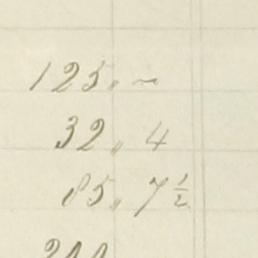 125 〃 ~
32 〃 4
85 〃 7 1/2